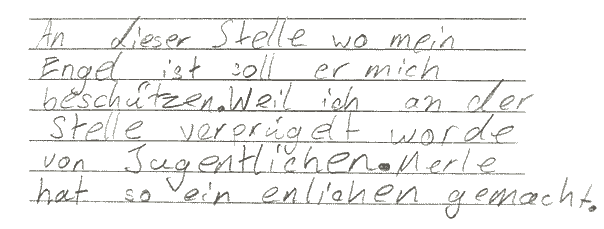 An dieser Stelle wo mein
Engel ist soll er mich
beschützen. Weil ich an der
Stelle verprügelt worde
von Jugentlichen. Merle
hat so ein enlichen gemacht.